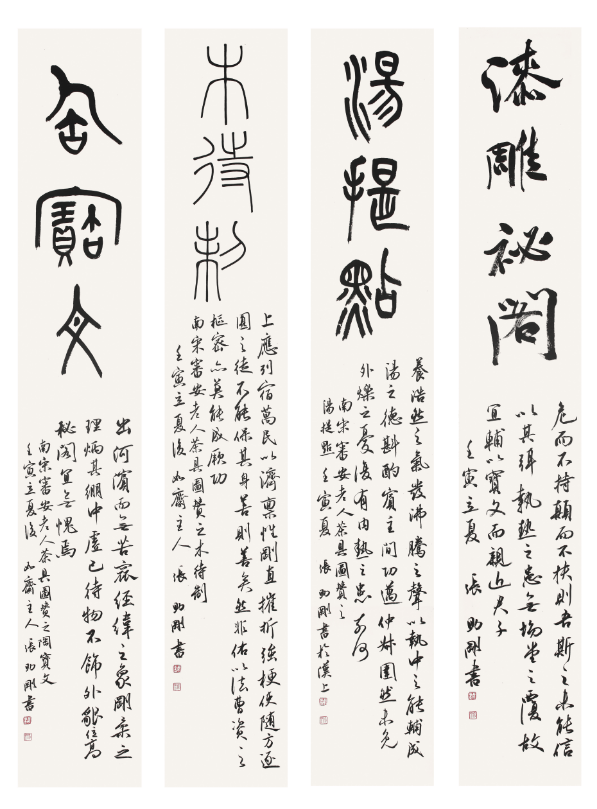 漆雕祕閣
危而不持顛而不扶則吾斯之未能信
以其弭執熱之患無坳堂之覆故
宜輔以寶文而親近君子
壬寅立夏 張助剛書
湯提點
養浩然之氣發沸騰之聲以執中之能輔成
湯之德斟酌賓主間功邁仲叔圉然未免
外爍之憂復有內熱之患奈何
南宋審安老人茶具圖贊之
湯提點 壬寅夏 張助剛書於漢上
木待制
上應列宿萬民以濟稟性剛直摧折強梗使隨方逐
圓之徒不能保其身善則善矣然非佑以法曹資之
樞密亦莫能成厥功
南宋審安老人茶具圖贊之木待制
壬寅立夏後 如齋主人 張助剛書
匋寶文
出河濱而無苦窳經緯之象剛柔之
理炳其繃中虛己待物不飾外貌位高
秘閣宜無愧焉
南宋審安老人茶具圖贊之陶寶文
壬寅立夏後 如齋主人張助剛書